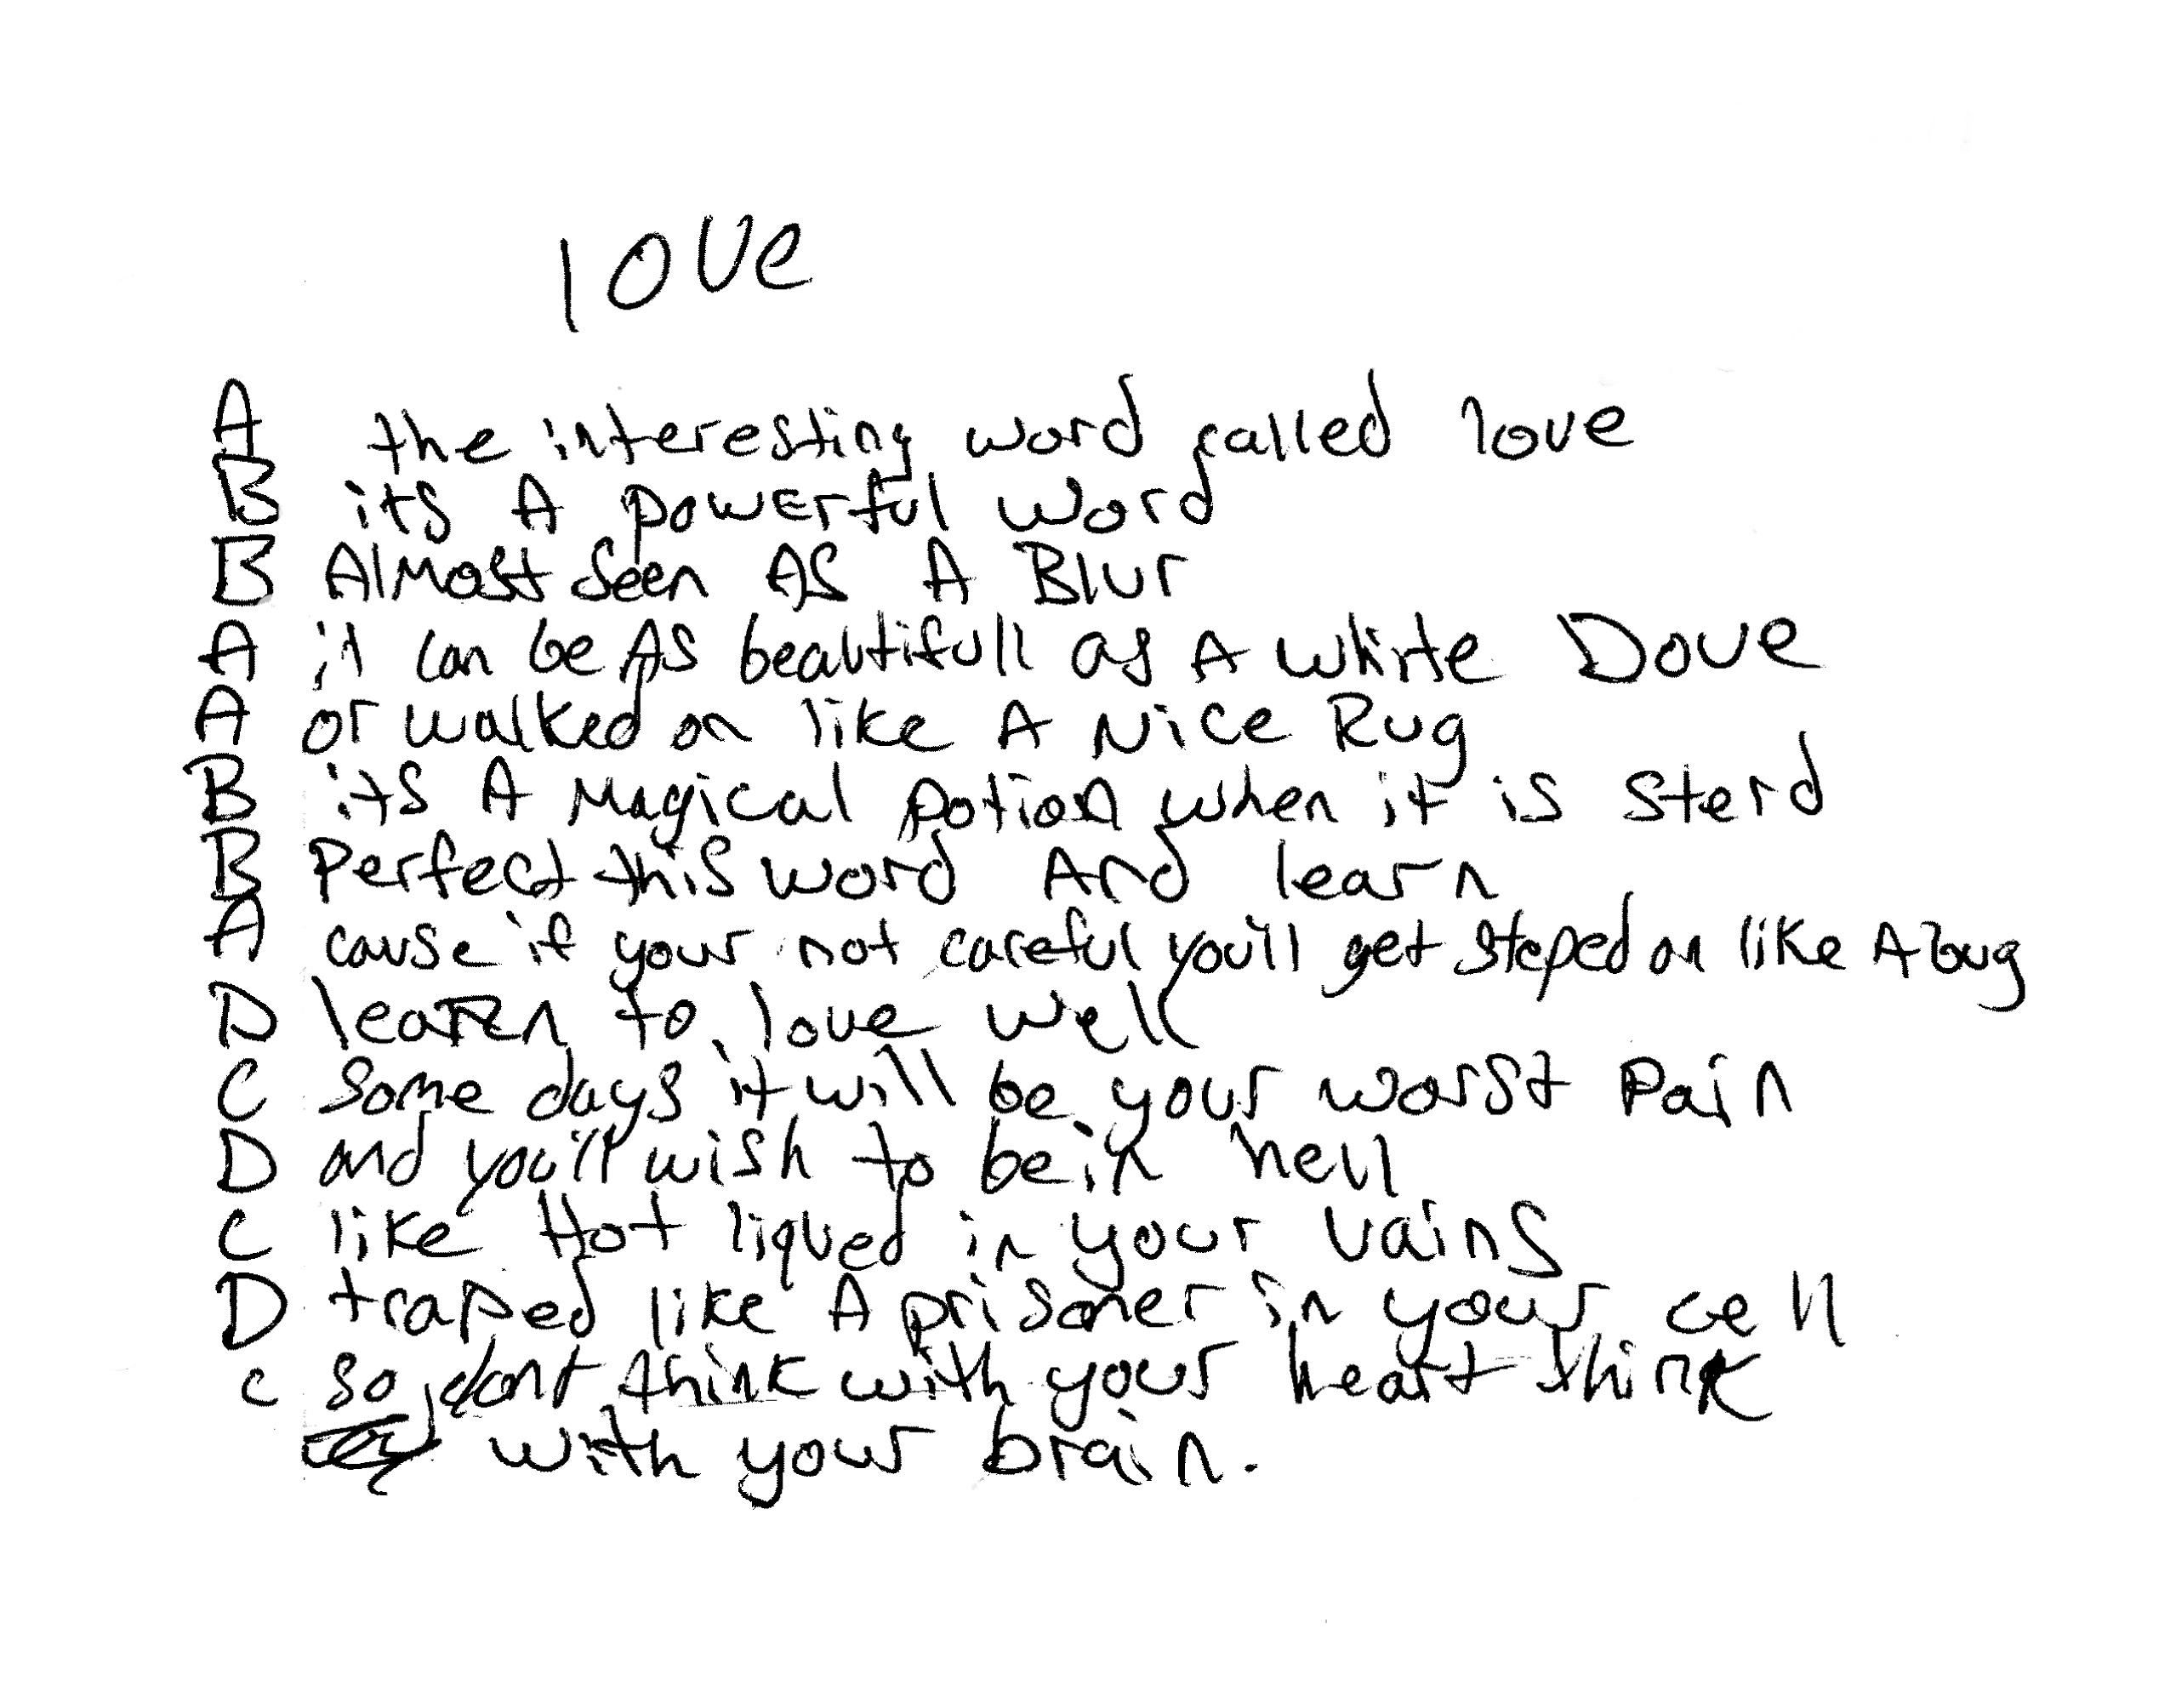 love
A the interesting word called love
B its A powerful word
B Almost seen AS A Blur
A it can be As beautifull as A white Dove
A or walked on like A Nice Rug
B its A Magical potion when it is sterd
B Perfect this word And learn
A cause if your not careful you'll get steped on like A bug
D learn to love well
C some days it will be your worst Pain
D and you'll wish to be in hell
C like Hot liqued in your vains
D traped like A prisoner in your cell
C so dont think with your heart think
with your brain.